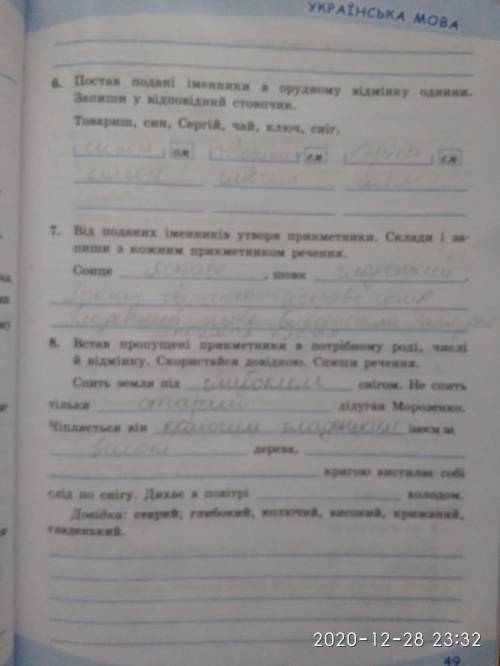 УКРАЇНСЬКА МОВА
6. Постав подані іменники в орудному відмінку однини.
Запиши у відповідний стовпчик.
Товариш, син, Сергій, чай, ключ, сніг.
ом ем єм
7. Від поданих іменників утвори прикметники. Склади і за-
пиши з кожним прикметником речення.
Сонце яскраве, шовк
8. Встав пропущені прикметники в потрібному роді, числі
й відмінку. Скористайся довідкою. Спиши речення.
Спить земля під глибоким снігом. Не спить
тільки старий дідуган Морозенко.
Чіпляється він колючим гладеньким інеєм за
високі дерева,
кригою вистилає собі
слід по снігу. Дихає в повітрі холодом.
Довідка: старий, глибокий, колючий, високий, крижаний,
гладенький.
2020-12-28 23:32
49